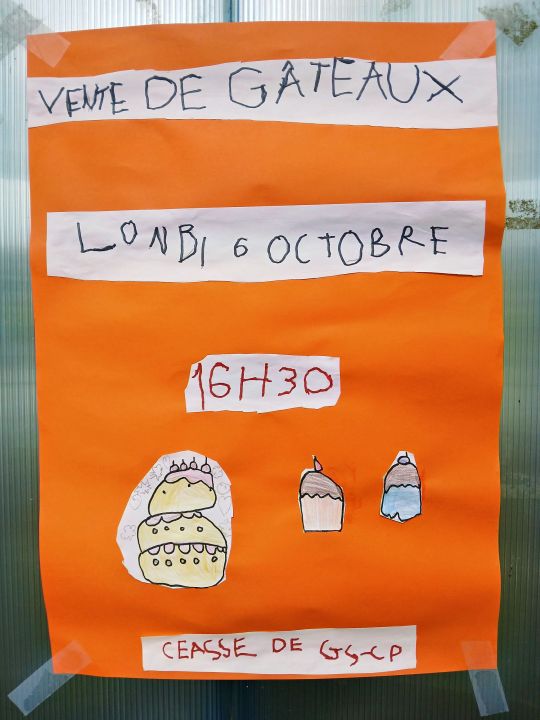 VENTE DE GÂTEAUX
LONBI 6 OCTOBRE
16H30
CEASSE DE GS-CP